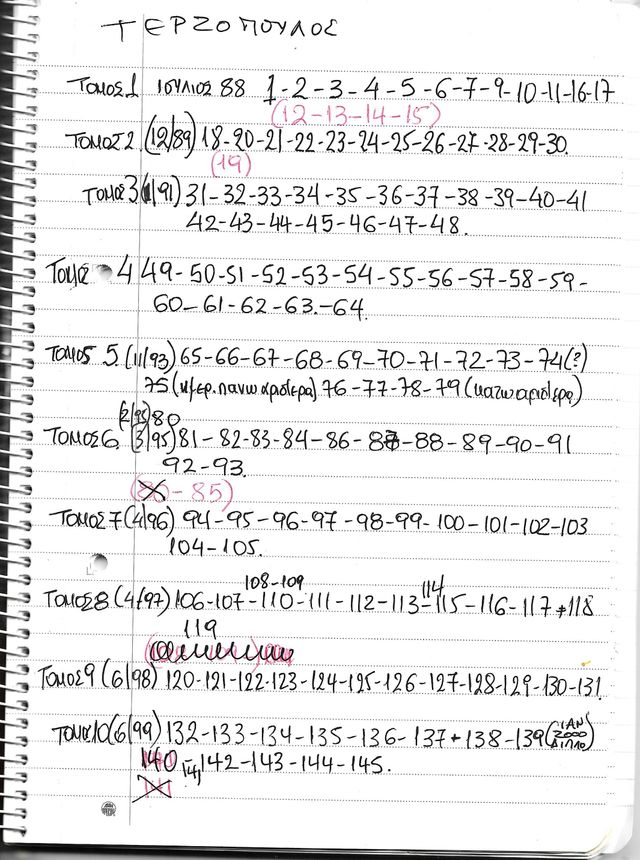 ΤΕΡΖΟΠΟΥΛΟΣ
ΤΟΜΟΣ 1 ΙΟΥΛΙΟΣ 88 1-2-3-4-5-6-7-9-10-11-16-17
(12-13-14-15)
ΤΟΜΟΣ 2 (12/89) 18-20-21-22-23-24-25-26-27-28-29-30.
(19)
ΤΟΜΟΣ 3 (1/91) 31-32-33-34-35-36-37-38-39-40-41
42-43-44-45-46-47-48.
ΤΟΜΟΣ 4 49-50-51-52-53-54-55-56-57-58-59-
60-61-62-63.-64.
ΤΟΜΟΣ 5 (11/93) 65-66-67-68-69-70-71-72-73-74(?)
75 (κ/ερ. πανω αριστερα) 76-77-78-79 (κατω αριστερα)
(2/95) 80
ΤΟΜΟΣ 6 (3/95) 81-82-83-84-86-87-88-89-90-91
92-93.
-85)
ΤΟΜΟΣ 7 (4/96) 94-95-96-97-98-99-100-101-102-103
104-105.
108-109 114
ΤΟΜΟΣ 8 (4/97) 106-107-110-111-112-113-115-116-117+118
119
ΤΟΜΟΣ 9 (6/98) 120-121-122-123-124-125-126-127-128-129-130-131.
ΤΟΜΟΣ 10 (6/99) 132-133-134-135-136-137+138-139 (ΙΑΝ 2000 ΔΙΠΛΟ)
140-141,142-143-144-145.